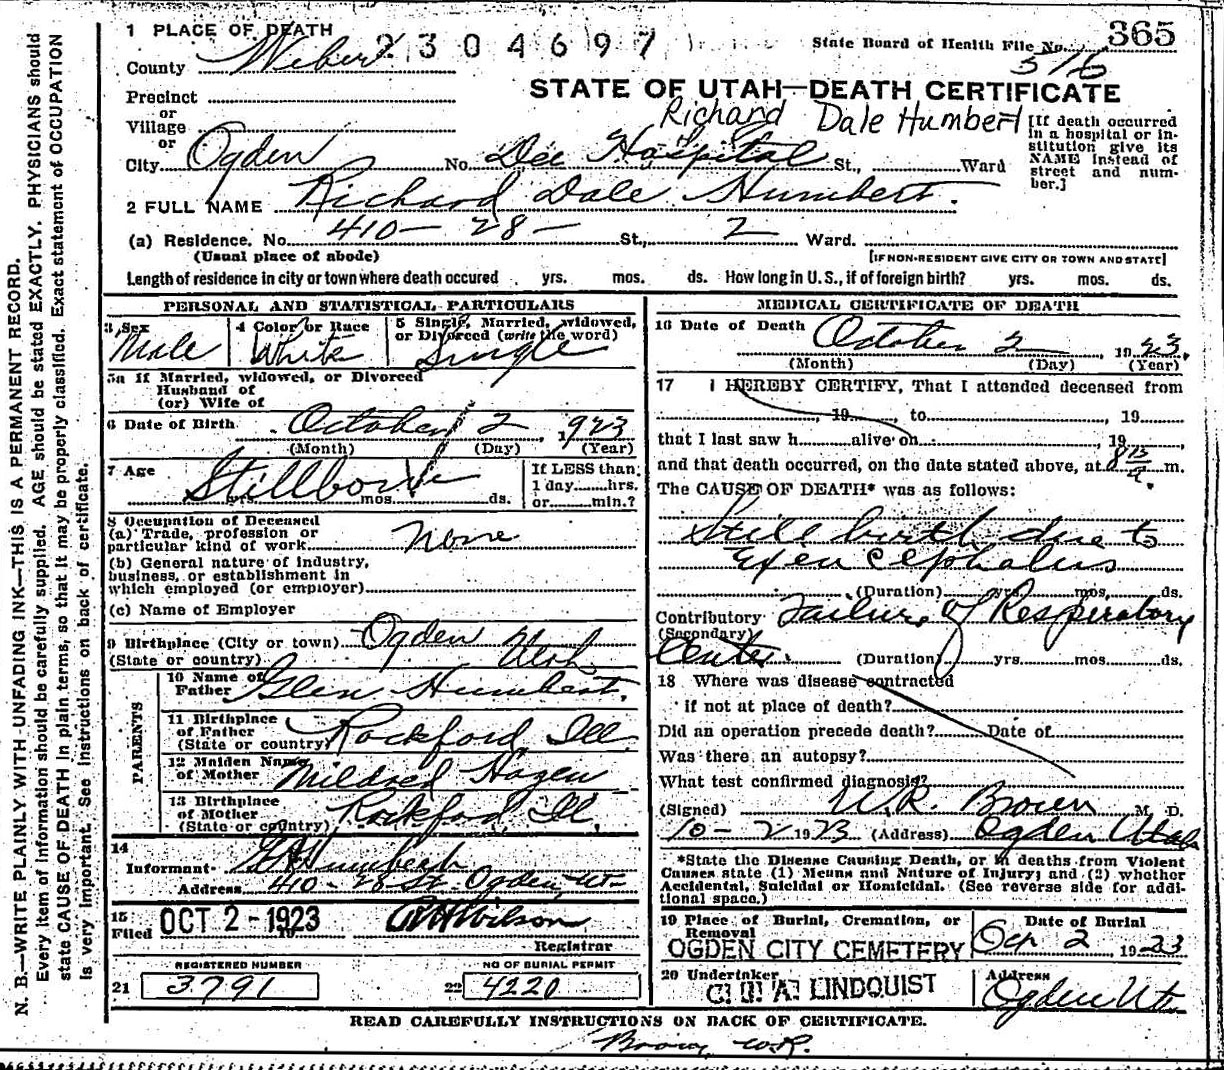 1 PLACE OF DEATH
2304697
State Board of Health File No. 365
516
County Weber
STATE OF UTAH—DEATH CERTIFICATE
Precinct
or
Village
or
Richard Dale Humbert
[If death occurred in a hospital or in-stitution give its NAME instead of street and num-ber.]
City Ogden No. Dee Hospital St., Ward
2 FULL NAME Richard Dale Humbert.
(a) Residence. No. 410— 28— St., 2 Ward.
(Usual place of abode) [IF NON-RESIDENT GIVE CITY OR TOWN AND STATE]
Length of residence in city or town where death occured yrs. mos. ds. How long in U. S., if of foreign birth? yrs. mos. ds.
PERSONAL AND STATISTICAL PARTICULARS
3 Sex 4 Color or Race 5 Single, Married, widowed,
or Divorced (write the word)
Male White Single
5a If Married, widowed, or Divorced
Husband of
(or) Wife of
6 Date of Birth October 2, 1923
(Month) (Day) (Year)
7 Age Stillborn
yrs. mos. ds.
If LESS than
1 day hrs.
or min.?
8 Occupation of Deceased
(a) Trade, profession or
particular kind of work none
(b) General nature of industry,
business, or establishment in
which employed (or employer)
(c) Name of Employer
9 Birthplace (City or town) Ogden
(State or country) Utah
PARENTS
10 Name of
Father Glen Humbert.
11 Birthplace
of Father
(State or country) Rockford, Ill.
12 Maiden Name
of Mother Mildred Hagen
13 Birthplace
of Mother
(State or country) Rockford, Ill.
14
Informant Humbert
Address 410-28 St. Ogden, Ut-
15
Filed OCT 2-1923 Wilson
19
Registrar
REGISTERED NUMBER NO OF BURIAL PERMIT
21 3791 22 4220
MEDICAL CERTIFICATE OF DEATH
16 Date of Death October 2, 1923.
(Month) (Day) (Year)
17 I HEREBY CERTIFY, That I attended deceased from
, 19 , to , 19
that I last saw h alive on , 19
and that death occurred, on the date stated above, at 8 15 a. m.
The CAUSE OF DEATH* was as follows:
Still birth due to
Exencephalus
(Duration) yrs. mos. ds.
Contributory Failure of Respiratory
(Secondary)
Center. (Duration) yrs mos ds.
18 Where was disease contracted
if not at place of death?
Did an operation precede death? Date of
Was there an autopsy?
What test confirmed diagnosis?
(Signed) W.R. Brown M. D.
10-2 1923 (Address) Ogden Utah
*State the Disease Causing Death, or in deaths from Violent
Causes state (1) Means and Nature of Injury; and (2) whether
Accidental, Suicidal or Homicidal. (See reverse side for addi-
tional space.)
19 Place of Burial, Cremation, or
Removal
OGDEN CITY CEMETERY
Date of Burial
Oct 2 1923
20 Undertaker
LINDQUIST
Address
Ogden Ut.
READ CAREFULLY INSTRUCTIONS ON BACK OF CERTIFICATE.
Brown, W.R.
N. B.—WRITE PLAINLY WITH UNFADING INK—THIS IS A PERMANENT RECORD.
Every item of information should be carefully supplied. AGE should be stated EXACTLY. PHYSICIANS should
state CAUSE OF DEATH in plain terms, so that it may be properly classified. Exact statement of OCCUPATION
is very important. See instructions on back of certificate.